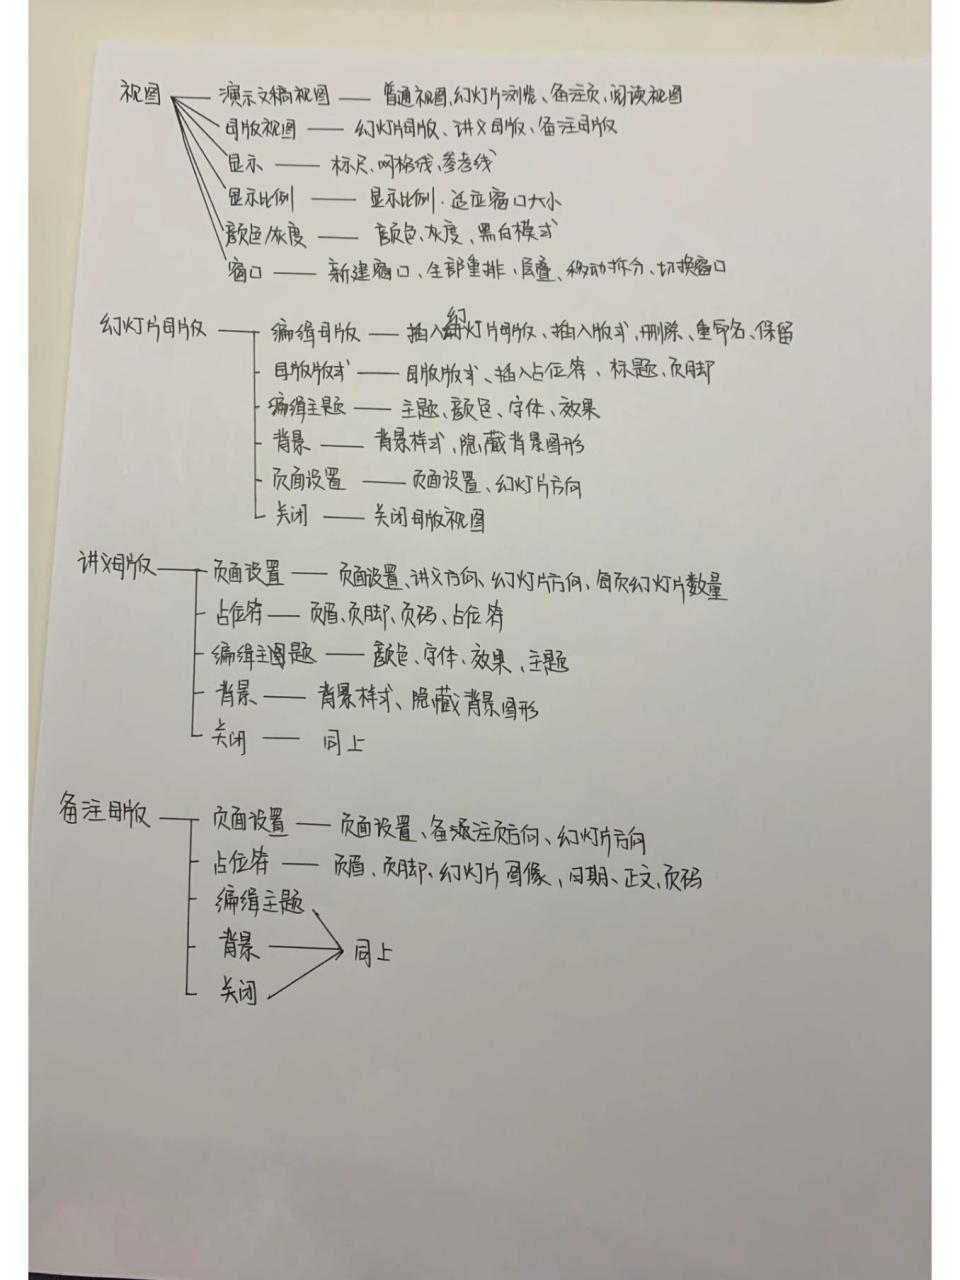 视图 演示文稿视图 — 普通视图、幻灯片浏览、备注页、阅读视图
母版视图 — 幻灯片母版、讲义母版、备注母版
显示 — 标尺、网格线、参考线
显示比例 — 显示比例、适应窗口大小
颜色/灰度 — 颜色、灰度、黑白模式
窗口 — 新建窗口、全部重排、层叠、移动拆分、切换窗口
幻灯片母版 — 编缉母版 — 插入幻灯片母版、插入版式、删除、重命名、保留
母版版式 — 母版版式、插入占位符、标题、页脚
编缉主题 — 主题、颜色、字体、效果
背景 — 背景样式、隐藏背景图形
页面设置 — 页面设置、幻灯片方向
关闭 — 关闭母版视图
讲义母版 — 页面设置 — 页面设置、讲义方向、幻灯片方向、每页幻灯片数量
占位符 — 页眉、页脚、页码、占位符
编缉主题 — 颜色、字体、效果、主题
背景 — 背景样式、隐藏背景图形
关闭 — 同上
备注母版 — 页面设置 — 页面设置、备注页方向、幻灯片方向
占位符 — 页眉、页脚、幻灯片图像、日期、正文、页码
编缉主题
背景 — 同上
关闭